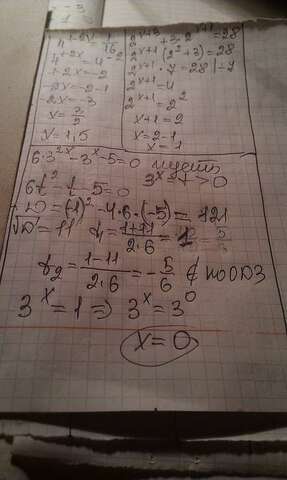 4^{1-2x} = 1/16
4^{1-2x} = 4^{-2}
1-2x=-2
-2x=-2-1
-2x=-3
x=3/2
x=1,5
2^{x+3}+3·2^{x+1}=28
2^{x+1}(2²+3)=28
2^{x+1}·7=28 |÷7
2^{x+1}=4
2^{x+1}=2²
x+1=2
x=2-1
x=1
6·3^{2x}-3^x-5=0 пусть
6t²-t-5=0 3^x=t>0
D=(-1)²-4·6·(-5)=121
√D=11 t₁=(1+11)/(2·6)=1
t₂=(1-11)/(2·6)=-5/6 ∉ по ОДЗ
3^x=1=>3^x=3^0
x=0